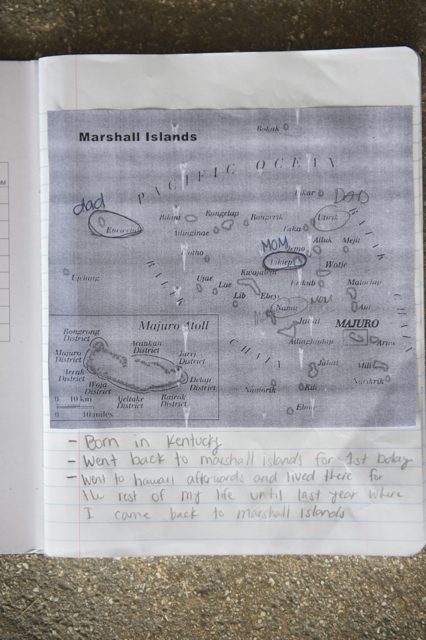 Marshall Islands
Bokak
PACIFIC OCEAN
Dad
DAD
Enewetak
Bikini
Rongelap
Rongerik
Utirik
Ailinginae
Taka
MOM
Ailuk
Mejit
Jemo
Likiep
Wotho
Wotje
Ujelang
Ujae
Lae
Kwajalein
Erikub
Maloelap
Lib
Ebeye
Namu
Aur
Majuro Atoll
Jabat
MAJURO
Rongrong
District
Arno
Ailinglaplap
Majuro
District
Jarej
District
Jaluit
Mili
Woja
District
Delap
District
Namorik
Kili
Ajeltake
District
Rairok
District
0 10 km
0 10 miles
Ebon
RATAK
CHAIN
RALIK
CHAIN
- Born in Kentucky
- Went back to marshall islands for 1st bday
- Went to hawaii afterwards and lived there for
the rest of my life until last year where
I came back to marshall islands